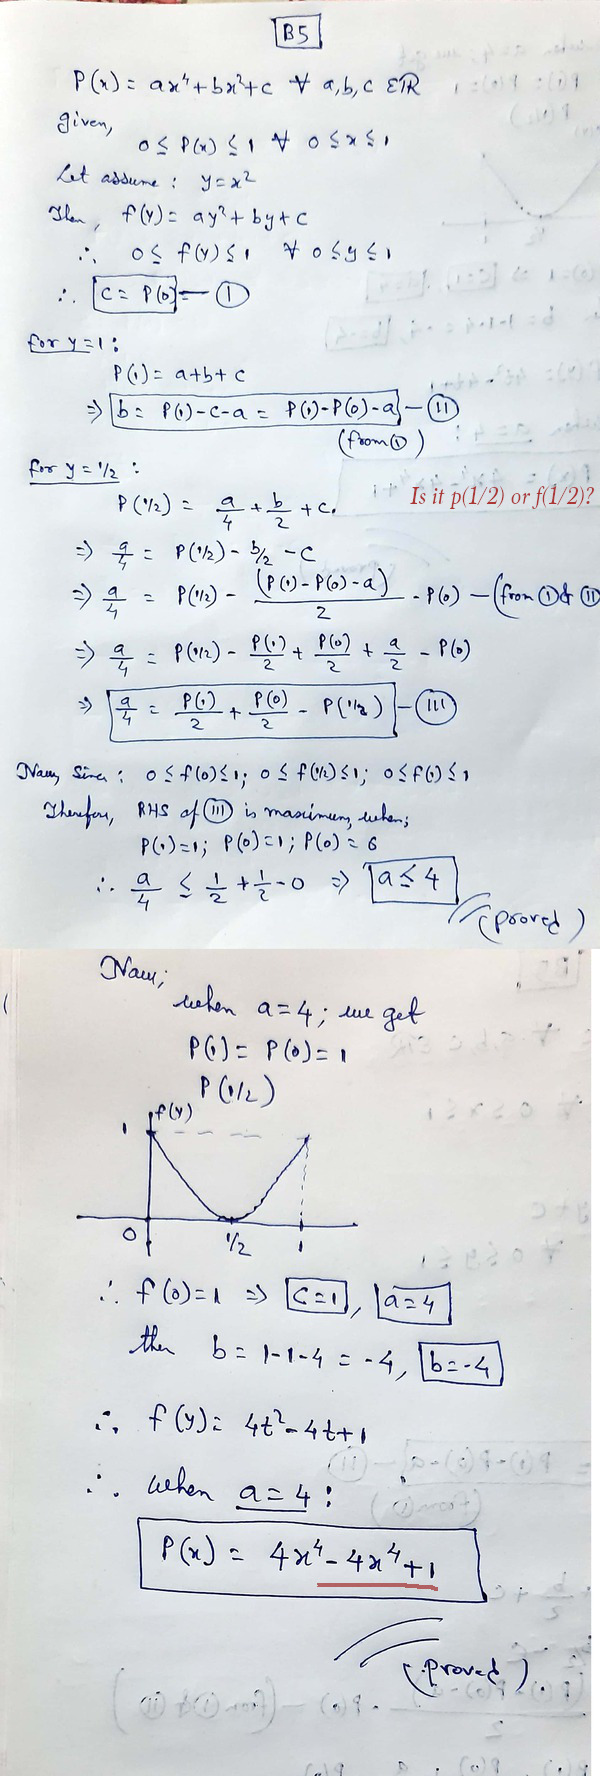 B5
P(x) = ax⁴ + bx² + c ∀ a, b, c ∈ ℝ
given,
0 ≤ P(x) ≤ 1 ∀ 0 ≤ x ≤ 1
Let assume : y = x²
Then, f(y) = ay² + by + c
∴ 0 ≤ f(y) ≤ 1 ∀ 0 ≤ y ≤ 1
∴ c = P(0) — I
for y=1 :
P(1) = a+b+c
⇒ b = P(1) - c - a = P(1) - P(0) - a — II
(from I)
for y = 1/2 :
P(1/2) = a/4 + b/2 + c.
Is it p(1/2) or f(1/2)?
⇒ a/4 = P(1/2) - b/2 - c
⇒ a/4 = P(1/2) - (P(1) - P(0) - a)/2 - P(0) — (from I & II
⇒ a/4 = P(1/2) - P(1)/2 + P(0)/2 + a/2 - P(0)
⇒ a/4 = P(1)/2 + P(0)/2 - P(1/2) — III
Now, Since : 0 ≤ f(0) ≤ 1; 0 ≤ f(1/2) ≤ 1; 0 ≤ f(1) ≤ 1
Therefore, RHS of III is maximum, when;
P(1) = 1; P(0) = 1; P(0) = 0
∴ a/4 ≤ 1/2 + 1/2 - 0 ⇒ a ≤ 4
(proved)
Now;
when a = 4; we get
P(1) = P(0) = 1
P(1/2)
f(y)
1
0 1/2 1
∴ f(0) = 1 ⇒ c=1, a=4
then b = 1-1-4 = -4, b=-4
∴ f(y) = 4t² - 4t + 1
∴ when a = 4 :
P(x) = 4x⁴ - 4x⁴ + 1
(proved)